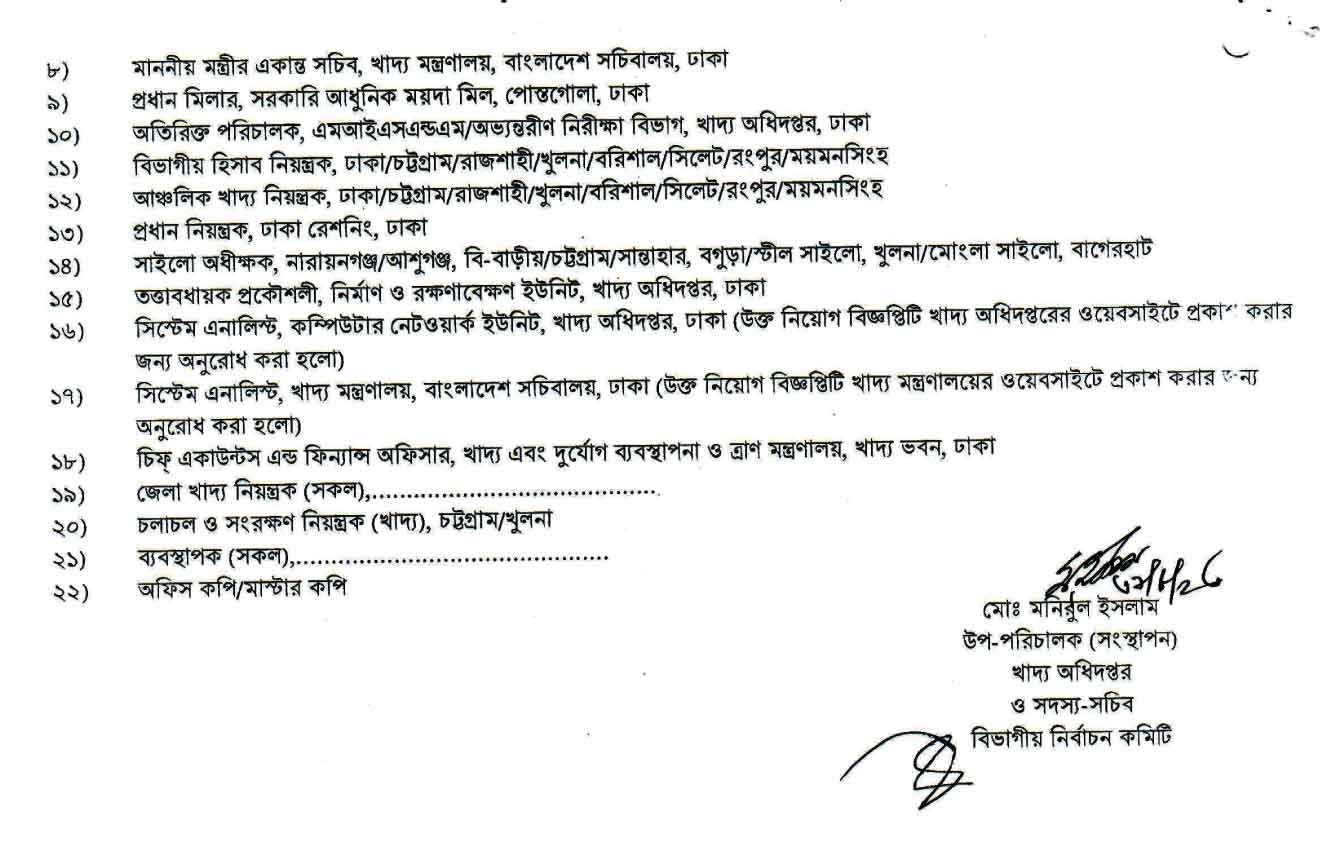 ৮) মাননীয় মন্ত্রীর একান্ত সচিব, খাদ্য মন্ত্রণালয়, বাংলাদেশ সচিবালয়, ঢাকা
৯) প্রধান মিলার, সরকারি আধুনিক ময়দা মিল, পোস্তগোলা, ঢাকা
১০) অতিরিক্ত পরিচালক, এমআইএসএন্ডএম/অভ্যন্তরীণ নিরীক্ষা বিভাগ, খাদ্য অধিদপ্তর, ঢাকা
১১) বিভাগীয় হিসাব নিয়ন্ত্রক, ঢাকা/চট্টগ্রাম/রাজশাহী/খুলনা/বরিশাল/সিলেট/রংপুর/ময়মনসিংহ
১২) আঞ্চলিক খাদ্য নিয়ন্ত্রক, ঢাকা/চট্টগ্রাম/রাজশাহী/খুলনা/বরিশাল/সিলেট/রংপুর/ময়মনসিংহ
১৩) প্রধান নিয়ন্ত্রক, ঢাকা রেশনিং, ঢাকা
১৪) সাইলো অধীক্ষক, নারায়নগঞ্জ/আশুগঞ্জ, বি-বাড়ীয়/চট্টগ্রাম/সান্তাহার, বগুড়া/স্টীল সাইলো, খুলনা/মোংলা সাইলো, বাগেরহাট
১৫) তত্তাবধায়ক প্রকৌশলী, নির্মাণ ও রক্ষণাবেক্ষণ ইউনিট, খাদ্য অধিদপ্তর, ঢাকা
১৬) সিস্টেম এনালিস্ট, কম্পিউটার নেটওয়ার্ক ইউনিট, খাদ্য অধিদপ্তর, ঢাকা (উক্ত নিয়োগ বিজ্ঞপ্তিটি খাদ্য অধিদপ্তরের ওয়েবসাইটে প্রকাশ করার
জন্য অনুরোধ করা হলো)
১৭) সিস্টেম এনালিস্ট, খাদ্য মন্ত্রণালয়, বাংলাদেশ সচিবালয়, ঢাকা (উক্ত নিয়োগ বিজ্ঞপ্তিটি খাদ্য মন্ত্রণালয়ের ওয়েবসাইটে প্রকাশ করার জন্য
অনুরোধ করা হলো)
১৮) চিফ্ একাউন্টস এন্ড ফিন্যান্স অফিসার, খাদ্য এবং দুর্যোগ ব্যবস্থাপনা ও ত্রাণ মন্ত্রণালয়, খাদ্য ভবন, ঢাকা
১৯) জেলা খাদ্য নিয়ন্ত্রক (সকল),..........................................
২০) চলাচল ও সংরক্ষণ নিয়ন্ত্রক (খাদ্য), চট্টগ্রাম/খুলনা
২১) ব্যবস্থাপক (সকল),..............................................
২২) অফিস কপি/মাস্টার কপি
মোঃ মনিরুল ইসলাম
উপ-পরিচালক (সংস্থাপন)
খাদ্য অধিদপ্তর
ও সদস্য-সচিব
বিভাগীয় নির্বাচন কমিটি